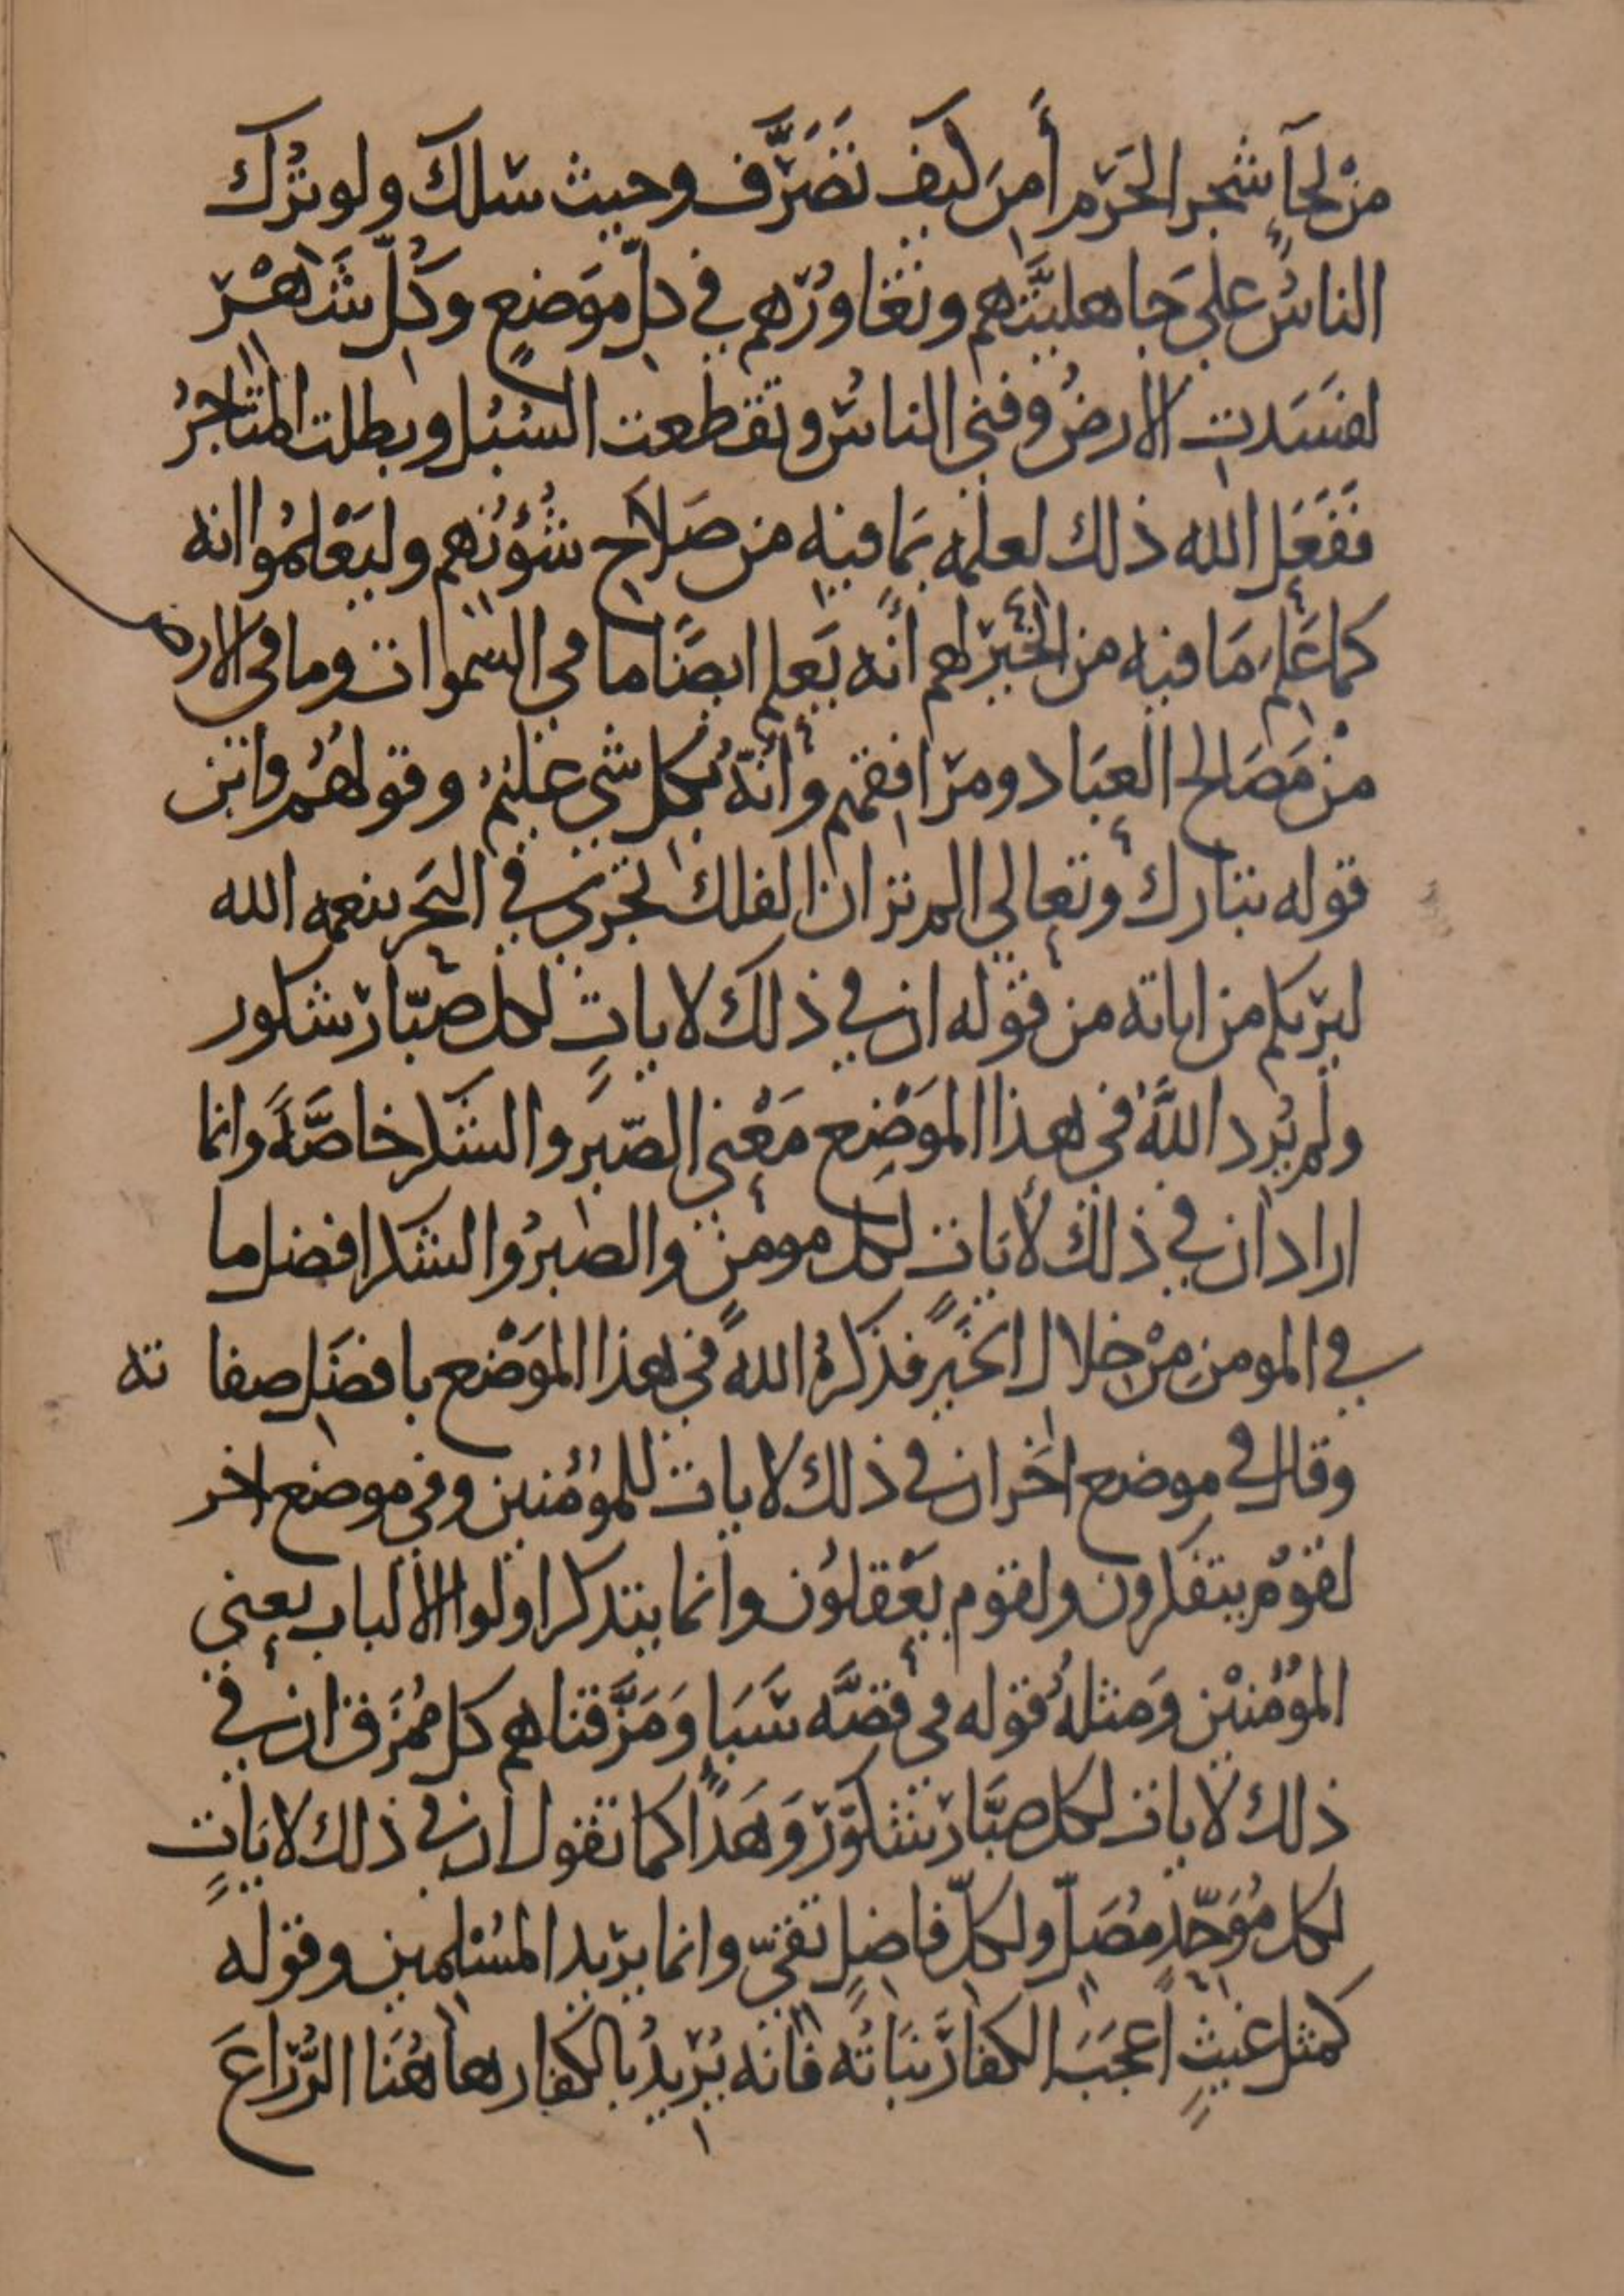 من لحآءِ شجر الحَرَم أَمِنَ كيف تَصَرَّف وحيث سلك ولو تُرك
الناسُ على جاهليَّتهم وتغاوُرهم في كلّ موَضعٍ وكُلّ شَهْر
لفسَدت الارضُ وفني الناسُ وتقطعت السُبُل وبطلت المتاجرُ
ففَعَل الله ذلك لعلمه بمَا فيه من صَلاح شُؤُنهم وليَعْلمُوا انه
كما عَلِم مَا فيه من الخَيْر لهم أنه يَعلم ايضًا ما في السموات وما في الارض
منْ مَصَالح العبَاد ومرَافقهم وأنّهُ بكل شي عليمُ وقولهُم واين
قوله تبارك وتعالى الم تر ان الفلك تجري في البَحر بنعمه الله
ليريكم من اياته من قوله ان في ذلك لاياتٍ لكل صَبّار شكور
ولم يُرد اللهُ في هذا الموَضِع مَعْنى الصّبَر والشكر خاصَّةً وانما
اراد ان في ذلك لأيَات لكل مومن والصَبرُ والشكر افضل ما
في المومن منْ خلال الخَير فذكرهُ اللهُ في هذا الموَضْع بافضَل صفا ته
وقال في موضع اخَر ان في ذلك لايات للمُؤمنين وفي موضع اخر
لقومٍ يتفكرون ولقوم يَعْقلوُن وانما يتذكر اولوا الالباب يعني
المؤُمنيْن وَمثلهُ قوله في قصَّه سَبَإ وَمَزَّقناهم كل مُمَزق ان في
ذلك لايات لكل صَبَّار شكوَر وَهَذا كما تقول ان في ذلك لايَاتٍ
لكل مُوَحّدٍ مُصَلّ ولكلّ فاضلٍ تقيّ وانما يريد المسُلمين وقوله
كمثل غيثٍ اعجَبَ الكفارَ نَبَاتُه فانه يُريدُ بالكفار هاهُنَا الزُّرّاعَ